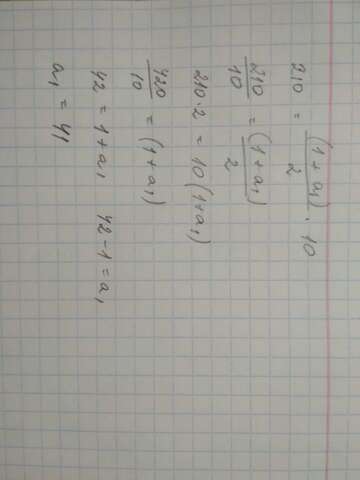 210 = (1 + a₁)/2 · 10
210/10 = (1 + a₁)/2
210·2 = 10(1+a₁)
420/10 = (1 + a₁)
42 = 1 + a₁ 42 - 1 = a₁
a₁ = 41